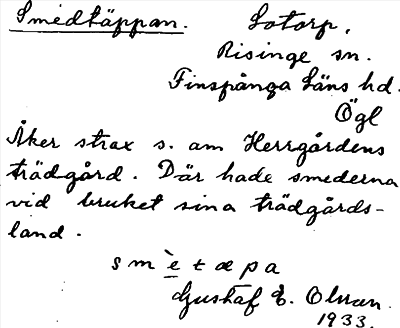 Smedtäppan. Lotorp,
Risinge sn.
Finspånga läns hd.
Ögl
Åker strax s. om Herrgårdens
trädgård. Där hade smederna
vid bruket sina trädgårds-
land.
s m è t æ p a
Gustaf E. Olsson.
1933.